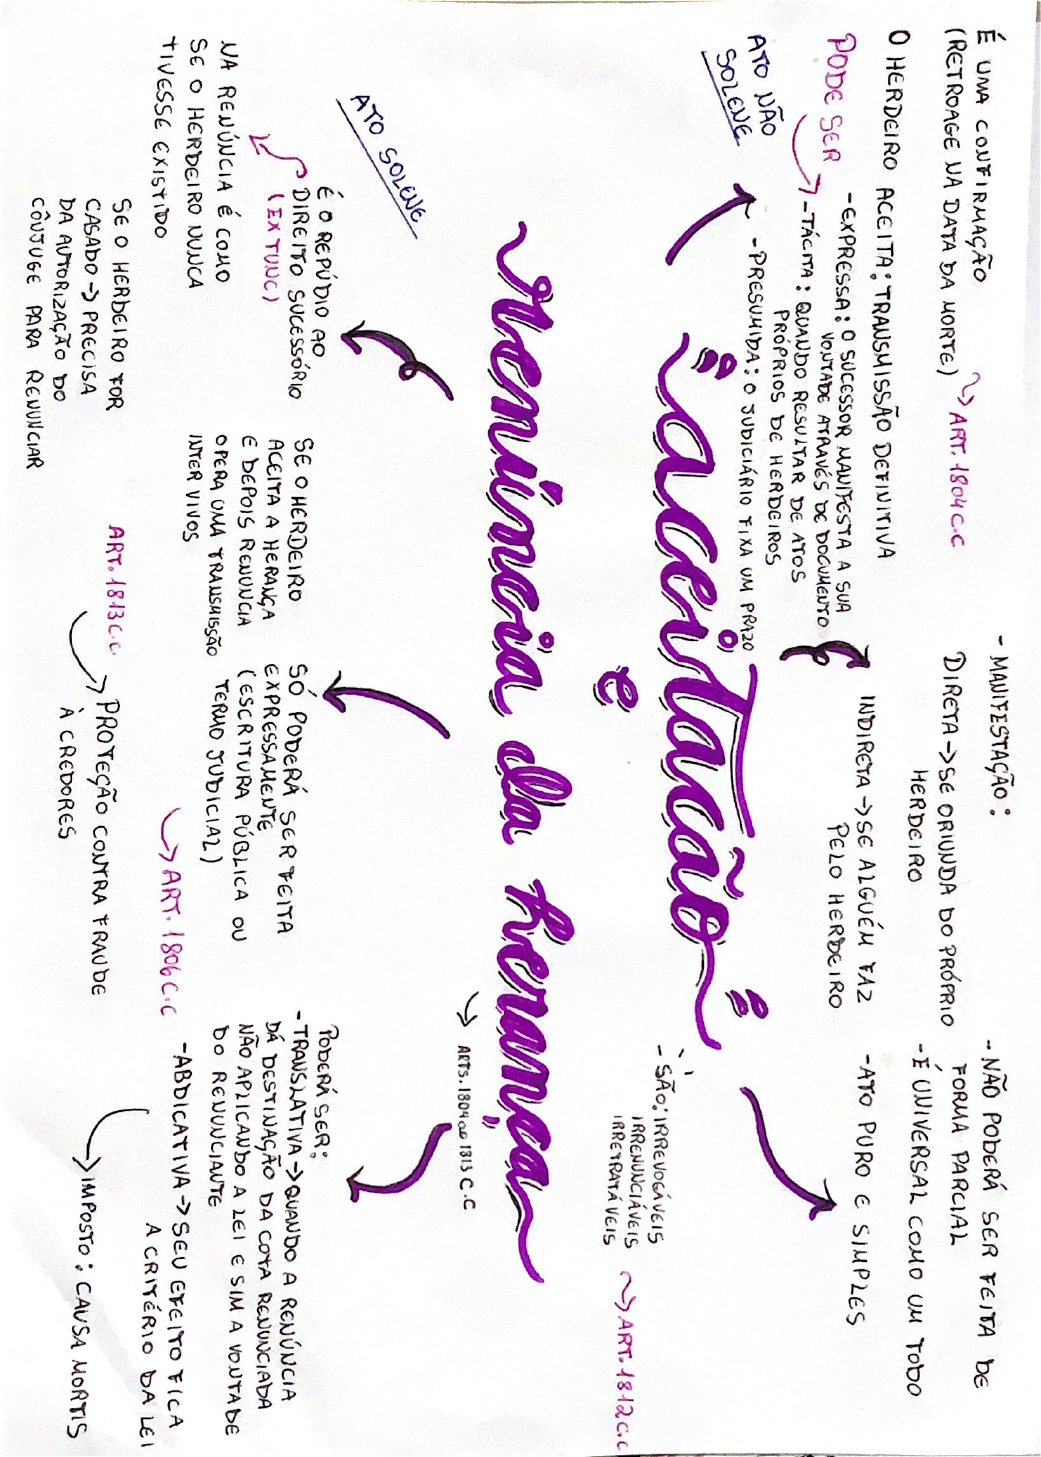 É UMA CONFIRMAÇÃO
(RETROAGE NA DATA DA MORTE)
ART. 1804 C.C
O HERDEIRO ACEITA: TRANSMISSÃO DEFINITIVA
PODE SER
-EXPRESSA: O SUCESSOR MANIFESTA A SUA
VONTADE ATRAVÉS DE DOCUMENTO
-TÁCITA: QUANDO RESULTAR DE ATOS
PRÓPRIOS DE HERDEIROS
-PRESUMIDA: O JUDICIÁRIO FIXA UM PRAZO
ATO NÃO
SOLENE
- MANIFESTAÇÃO:
DIRETA → SE ORIUNDA DO PRÓPRIO
HERDEIRO
INDIRETA → SE ALGUÉM FAZ
PELO HERDEIRO
- NÃO PODERÁ SER FEITA DE
FORMA PARCIAL
- É UNIVERSAL COMO UM TODO
- ATO PURO E SIMPLES
aceitação
e
renúncia da herança
- SÃO: IRREVOGÁVEIS
IRRENUNCIÁVEIS
IRRETRATÁVEIS
ART. 1812 C.C
ARTS. 1804 ao 1813 C.C
ATO SOLENE
É O REPÚDIO AO
DIREITO SUCESSÓRIO
(EX TUNC)
NA RENÚNCIA É COMO
SE O HERDEIRO NUNCA
TIVESSE EXISTIDO
SE O HERDEIRO FOR
CASADO → PRECISA
DA AUTORIZAÇÃO DO
CÔNJUGE PARA RENUNCIAR
SE O HERDEIRO
ACEITA A HERANÇA
E DEPOIS RENUNCIA
OPERA UMA TRANSMISSÃO
INTER VIVOS
ART. 1813 C.C
PROTEÇÃO CONTRA FRAUDE
À CREDORES
SÓ PODERÁ SER FEITA
EXPRESSAMENTE
(ESCRITURA PÚBLICA OU
TERMO JUDICIAL)
ART. 1806 C.C
PODERÁ SER:
- TRANSLATIVA → QUANDO A RENÚNCIA
DÁ DESTINAÇÃO DA COTA RENUNCIADA
NÃO APLICANDO A LEI E SIM A VONTADE
DO RENUNCIANTE
- ABDICATIVA → SEU EFEITO FICA
A CRITÉRIO DA LEI
IMPOSTO: CAUSA MORTIS